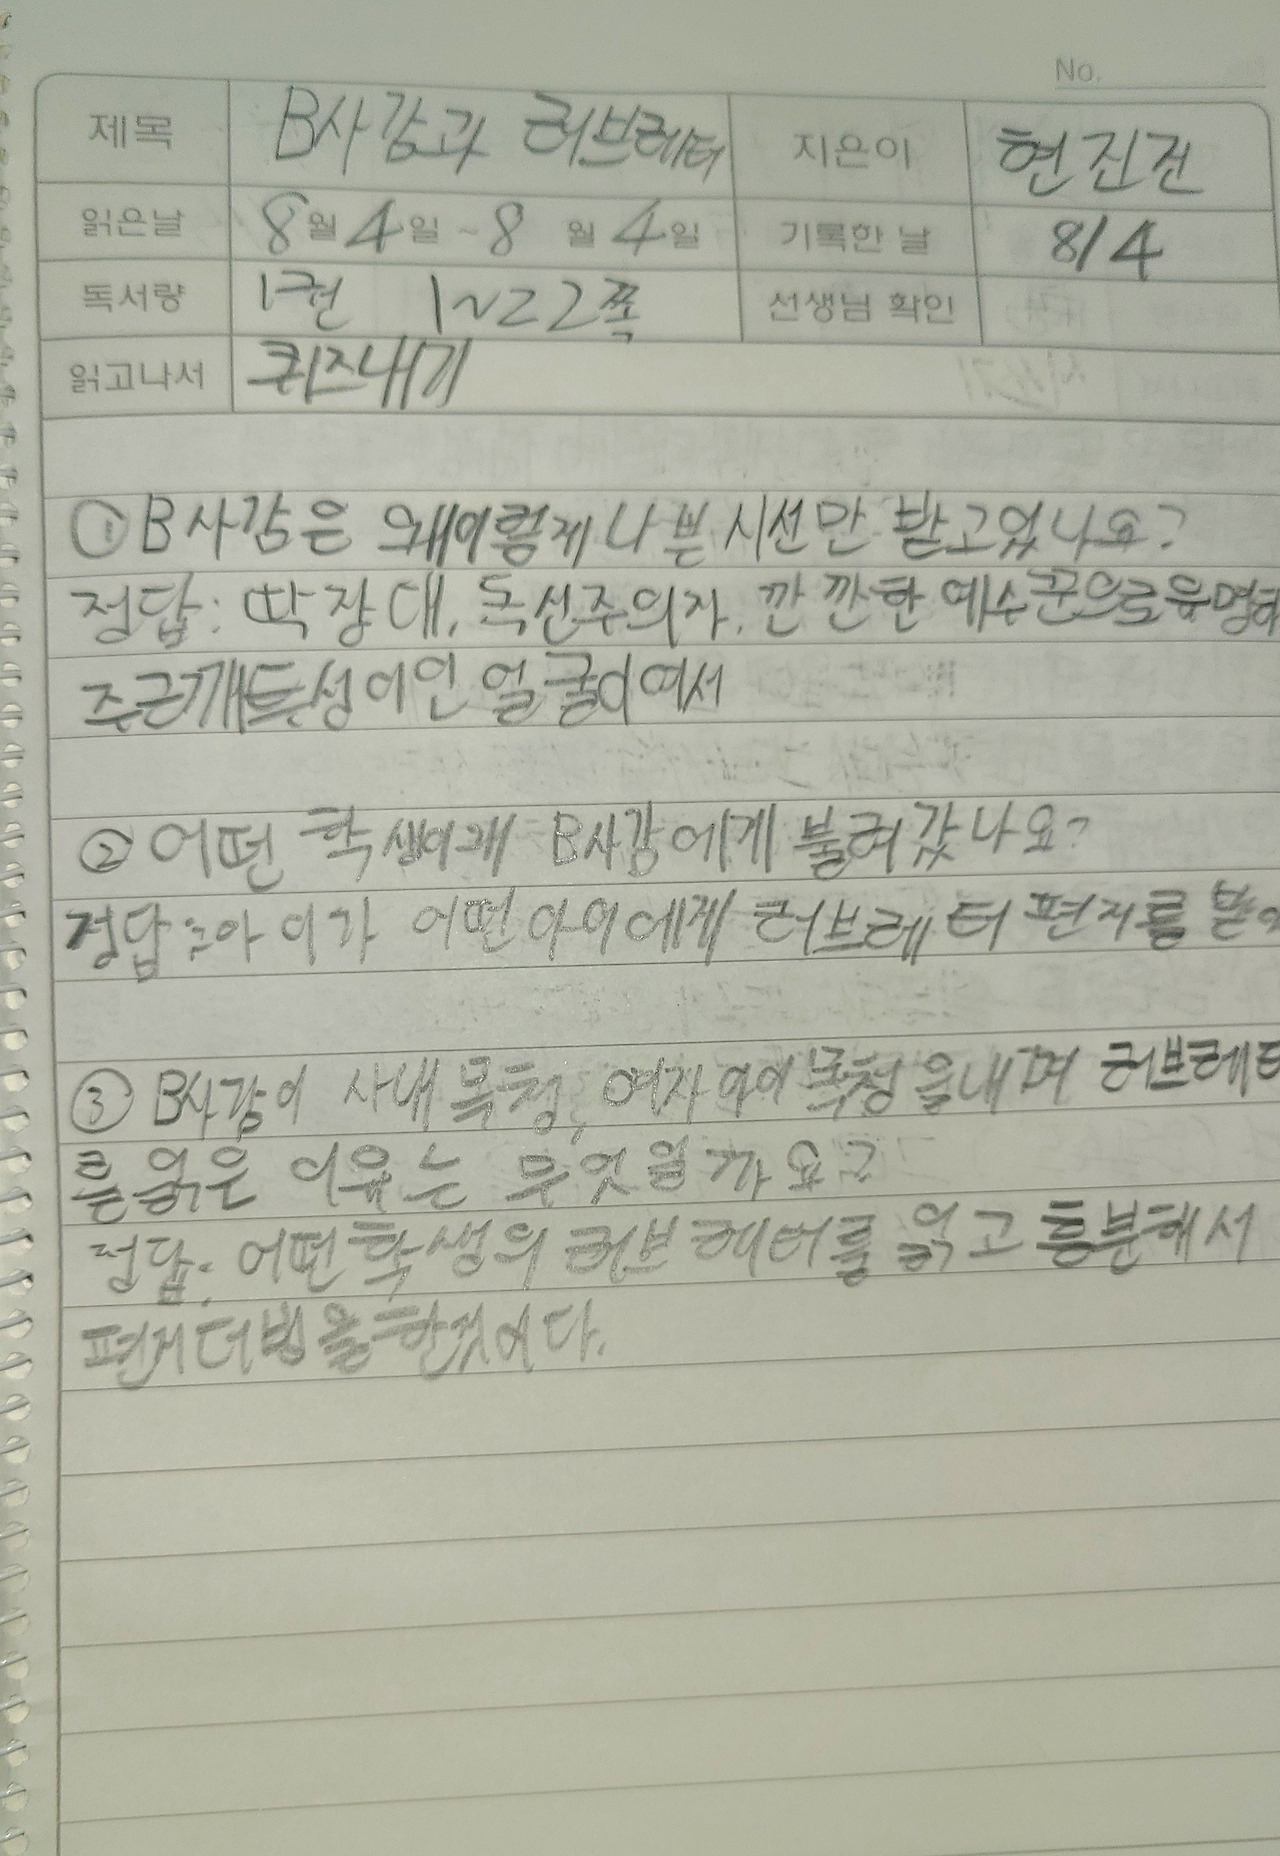 No.
제목 B사감과 러브레터 지은이 현진건
읽은날 8월 4일 ~ 8월 4일 기록한 날 8/4
독서량 1권 1~22쪽 선생님 확인
읽고나서 퀴즈내기
① B사감은 왜이렇게 나쁜 시선만 받고있나요?
정답: 딱장대, 독신주의자, 깐깐한 예수꾼으로유명하
주근깨득성이인 얼굴이여서
② 어떤 학생이개 B사감에게 불려갔나요?
정답: 아이가 어떤아이에게 러브레터 편지를 받아
③ B사감이 사내목청, 여자아이목청을내며 러브레터
를읽은 이유는 무엇일까요?
정답: 어떤학생의 러브레터를 읽고 흥분해서
편지더빙을한것이다.